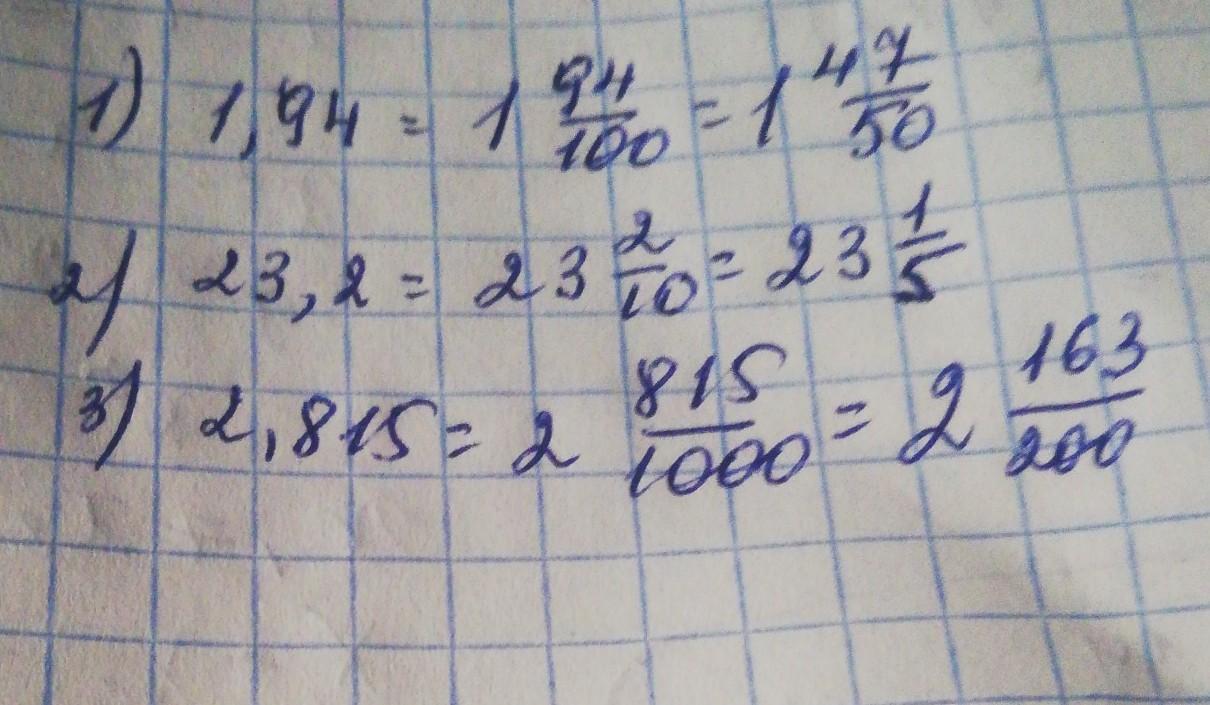 1) 1,94 = 1 94/100 = 1 47/50
2) 23,2 = 23 2/10 = 23 1/5
3) 2,815 = 2 815/1000 = 2 163/200